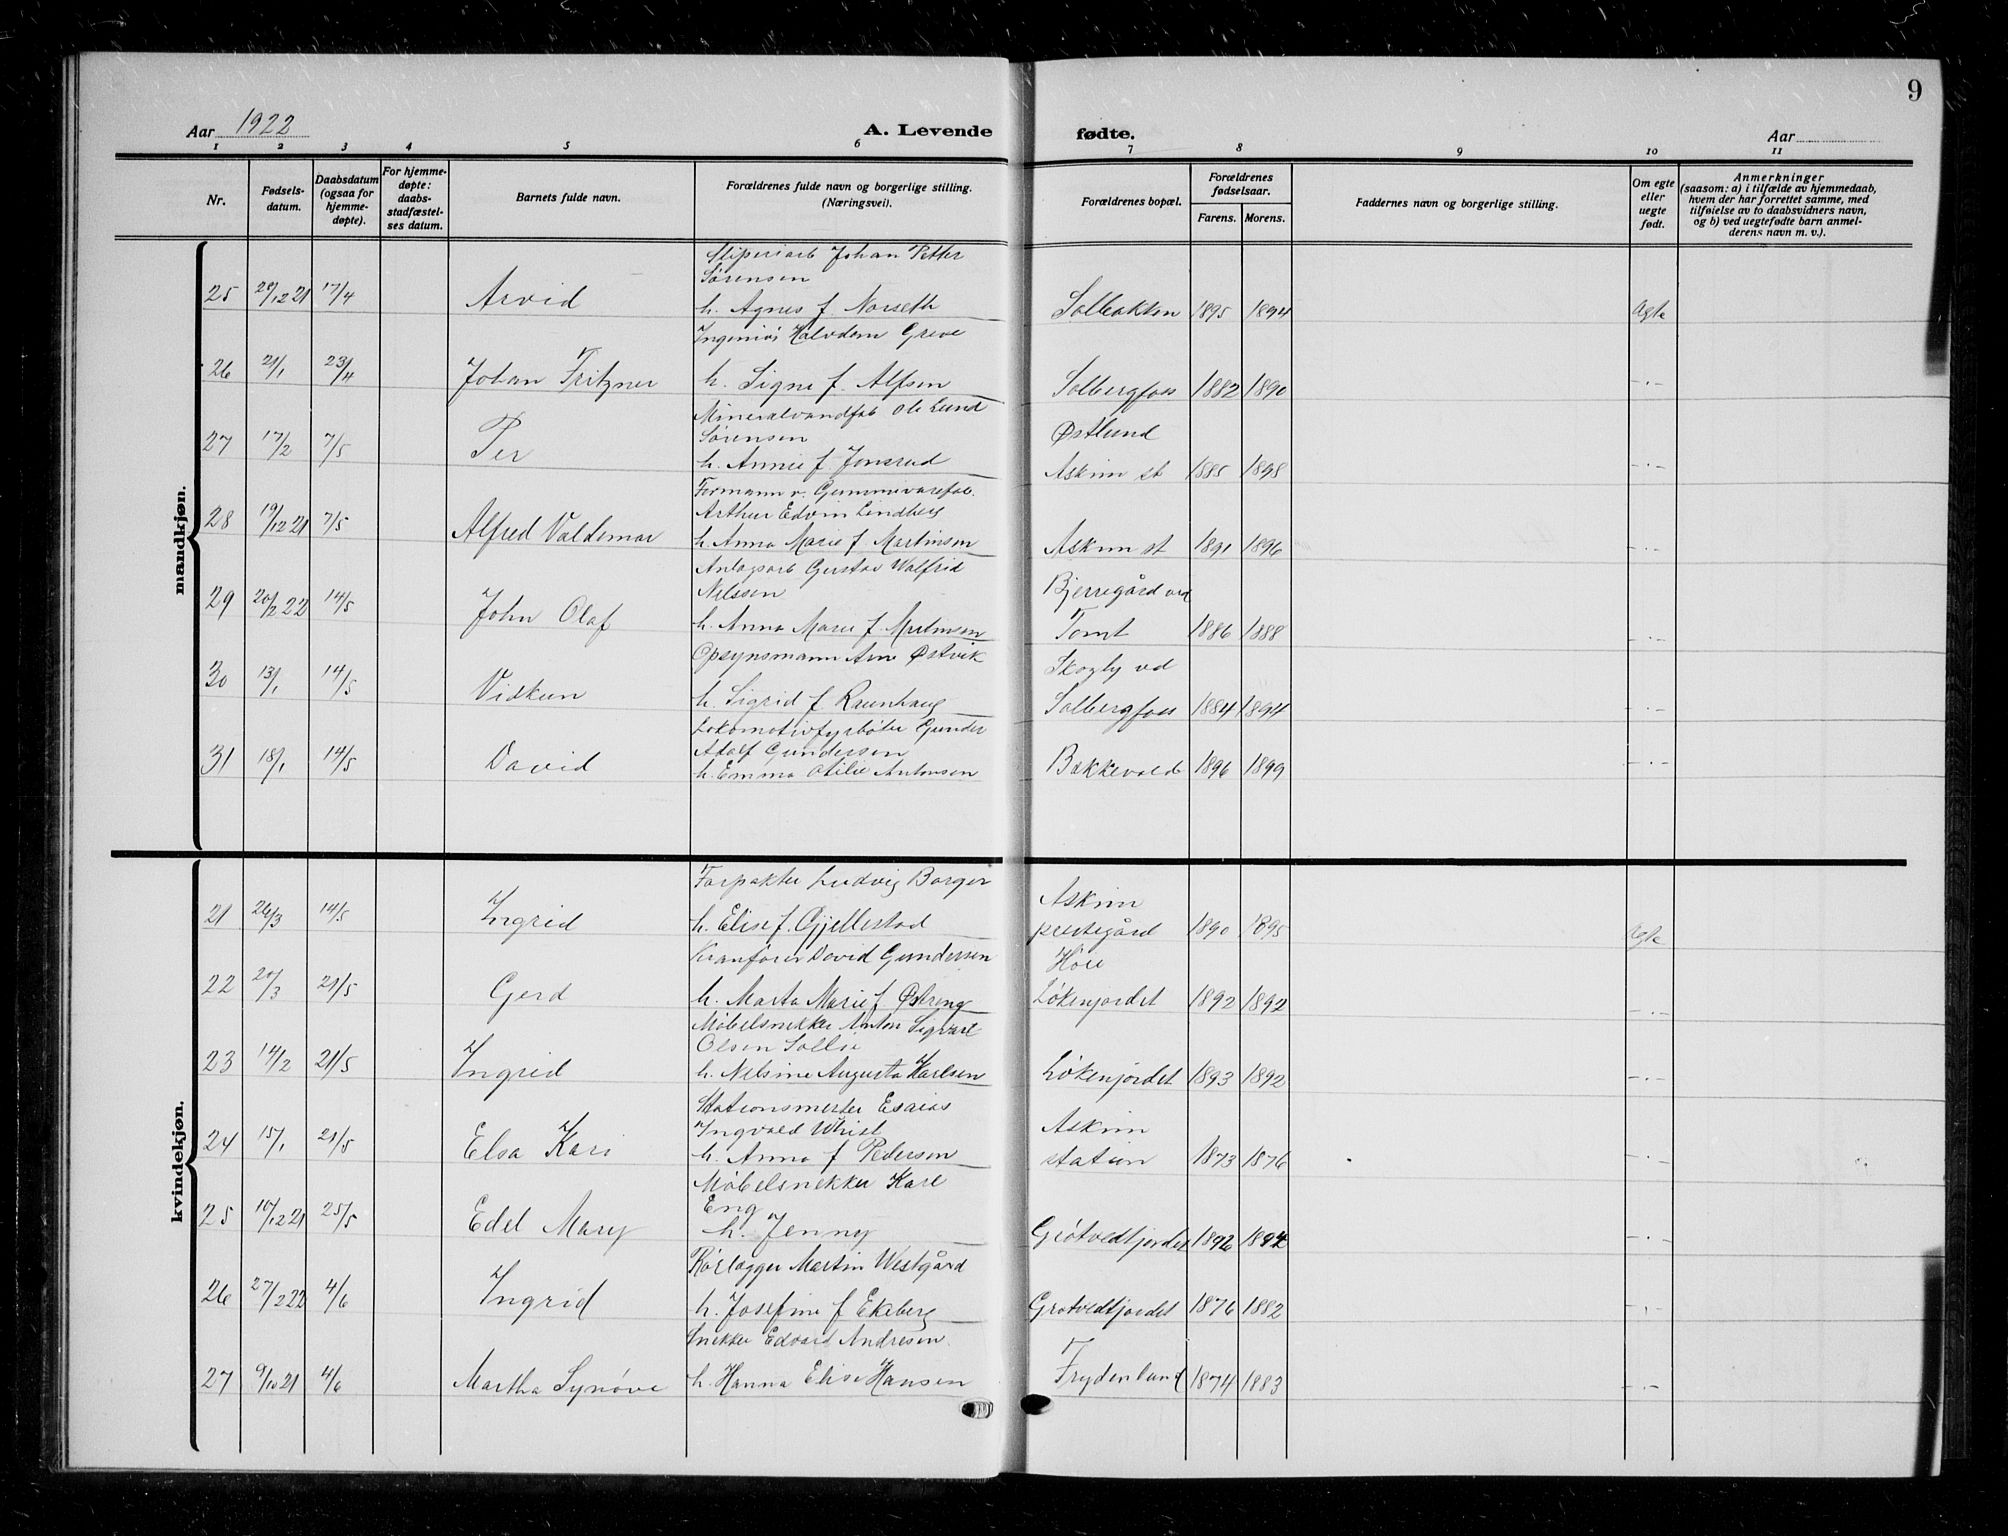 9
Aar 1922
A. Levende
fødte.
Aar
1 2 3 4 5 6 7 8 9 10 11
Nr.
Fødsels-
datum.
Daabsdatum
(ogsaa for
hjemme-
døpte).
For hjemme-
døpte:
daabs-
stadfæstel-
ses datum.
Barnets fulde navn.
Forældrenes fulde navn og borgerlige stilling.
(Næringsvei).
Forældrenes bopæl.
Forældrenes
fødselsaar.
Farens. Morens.
Faddernes navn og borgerlige stilling.
Om egte
eller
uegte
født.
Anmerkninger
(saasom: a) i tilfælde av hjemmedaab,
hvem der har forrettet samme, med
tilføielse av to daabsvidners navn,
og b) ved uegtefødte barn anmel-
derens navn m. v.).
mandkjøn.
Sliperiarb Johan Petter
Sørensen
25 29/12 21 17/4 Arvid h. Agnes f. Narseth Solbakken 1895 1894 Ægte
Ingeniør Halvdan Greve
26 21/1 23/4 Johan Fritzner h. Signe f. Alfsen Solbergfoss 1882 1890 -.-
Mineralvandfab Ole Lund
Sørensen Østlund
27 17/2 7/5 Per h. Annie f. Jonsrud Askim st 1885 1898 -.-
Formann v. Gummivarefab.
Arthur Edvin Lindberg
28 19/12 21 7/5 Alfred Valdemar h. Anna Marie f. Martinsen Askim st 1891 1896 -.-
Anlagsarb Gustav Walfrid
Nilssen Bjerregård ved
29 20/2 22 14/5 John Olaf h. Anna Marie f. Martinsen Tomt 1886 1888 -.-
Opsynsmann Arne Østvik Skogly ved
30 13/1 14/5 Vidkun h. Sigrid f. Raunhaug Solbergfoss 1884 1894 -.-
Lokomotivfyrbøter Gunder
Adolf Gundersen
31 18/1 14/5 David h. Emma Otilie Antonsen Bækkevold 1896 1899 -.-
kvindekjøn.
Forpakter Ludvig Borger Askim
21 26/3 14/5 Ingrid h. Elise f. Gjellestad prestegård 1890 1895 Ægte
Kranfører David Gundersen
22 20/3 21/5 Gerd h. Marta Marie f. Østreng Løkenjordet 1892 1892 -.-
Møbelsnekker Anton Sigvart
Olsen Sollie
23 14/2 21/5 Ingrid h. Nilsine Augusta Karlsen Løkenjordet 1893 1892 -.-
Stationsmester Esaias
Ingvald Askim
24 15/1 21/5 Elsa Kari h. Anna f. Pedersen station 1873 1876 -.-
Møbelsnekker Karl
Eng
25 10/12 21 25/5 Edel Mary h. Jenny Grøtvedtjordet 1892 1894 -.-
Rørlægger Martin Westgård
26 27/2 22 4/6 Ingrid h. Josefine f. Ekeberg Grøtvedtjordet 1876 1882 -.-
Snekker Edvard Andresen
27 9/10 21 4/6 Martha Synøve h. Hanna Elise Hansen Frydenlund 1874 1883 -.-